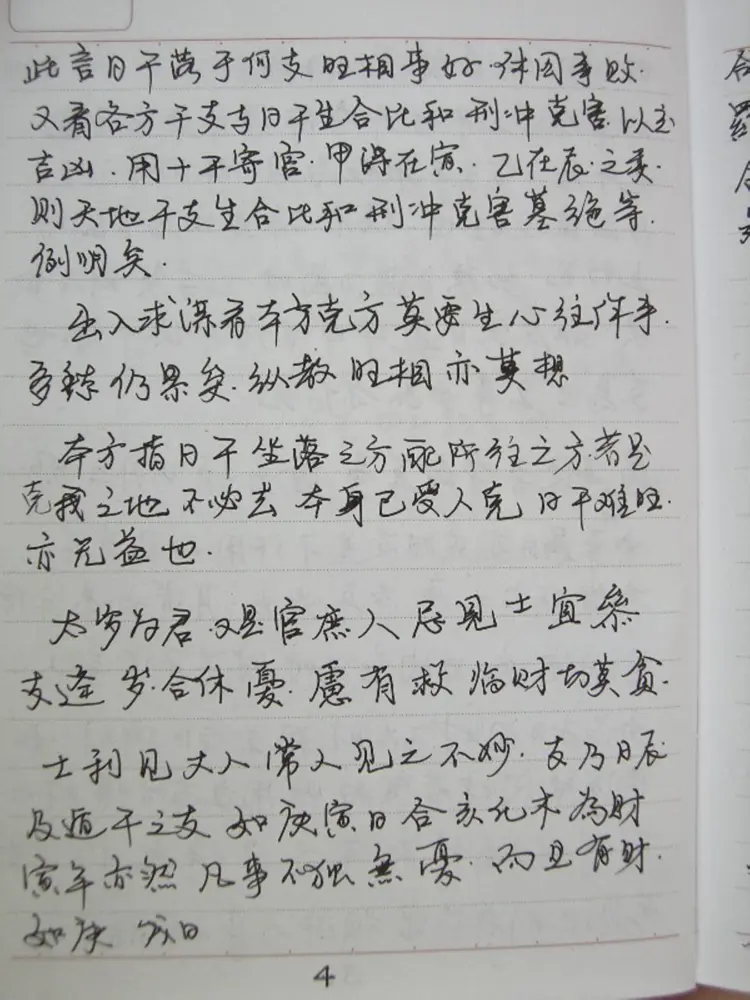 此言日干落于何支旺相事好.休囚事败.
又看各方干支与日干生合比和刑冲克害.以定
吉凶.用十干寄宫.甲得在寅.乙在辰.之类.
则天地干支生合比和刑冲克害墓绝等.
例明矣.
出入求谋看本方克方莫要生心往作事.
多 仍累矣.纵教旺相亦莫想
本方指日干坐落之方配所往之方.若是
克我之地不必去 本身已受人克 日干难旺.
亦无益也.
太岁为君.又是官庶人忌见士宜参
支逢岁.合休憂.慮有救 临财切莫贪.
士利见大人常人见之不妙.支乃日辰
及遁干之支 如庚寅日合亥化木為財
寅年亦然 凡事不独無憂.而且有財.
如庚 日
4